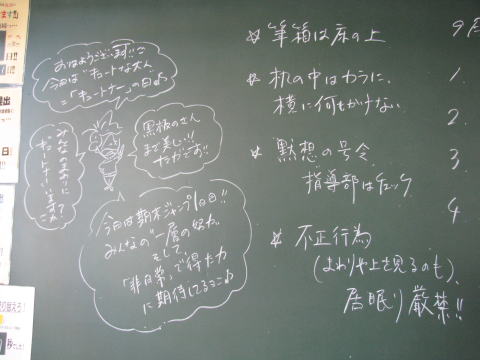 おはようございます!!
今日は"キュートな大人
=「キュートナー」の日
みんなのまわりに
キュートナーいますか
黒板のさん
まで美しい!!
さすがです!!
今日は期末ジャンプ1日目!!
みんなの"一層の努力。
そして、
「非日常」で得た力
に期待してるよ
☆ 筆箱は床の上
☆ 机の中はカラに、
横に何もかけない
☆ 黙想の号令
指導部はチェック
☆ 不正行為
(まわりや上を見るのも)、
居眠り厳禁!!
9月
1.
2.
3.
4
提出